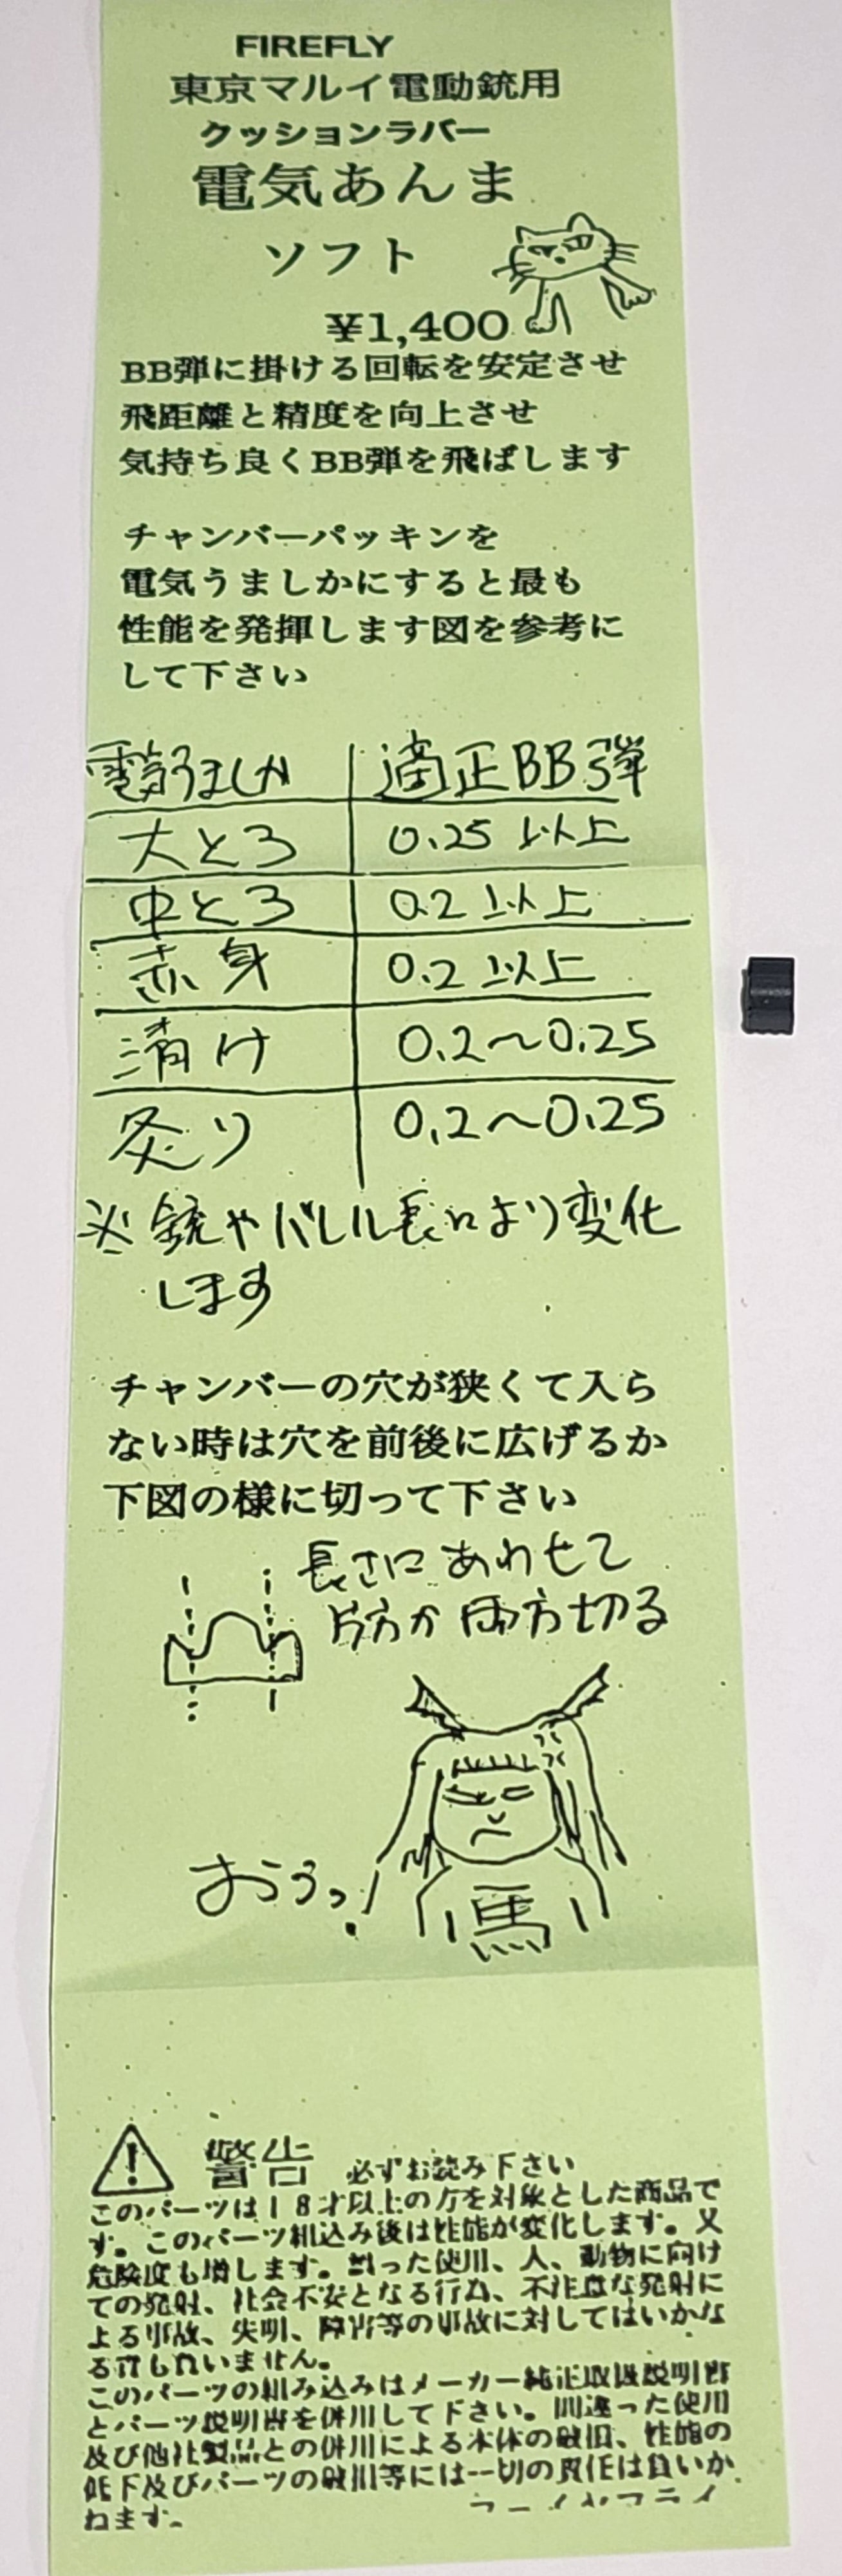 FIREFLY
東京マルイ電動銃用
クッションラバー
電気あんま
ソフト
¥1,400
BB弾に掛ける回転を安定させ
飛距離と精度を向上させ
気持ち良くBB弾を飛ばします
チャンバーパッキンを
電気うましかにすると最も
性能を発揮します図を参考に
して下さい
電気うましか 適正BB弾
大とろ 0.25以上
中とろ 0.2以上
赤身 0.2以上
漬け 0.2〜0.25
炙り 0.2〜0.25
※銃やバレル長により変化
します
チャンバーの穴が狭くて入ら
ない時は穴を前後に広げるか
下図の様に切って下さい
長さにあわせて
片方か両方切る
おうっ!
馬
警告 必ずお読み下さい
このパーツは18才以上の方を対象とした商品で
す。このパーツ組込み後は性能が変化します。又
危険度も増します。誤った使用、人、動物に向け
ての発射、社会不安となる行為、不注意な発射に
よる事故、失明、障害等の事故に対してはいかな
る責も負いません。
このパーツの組み込みはメーカー純正取扱説明書
とパーツ説明書を併用して下さい。間違った使用
及び他社製品との併用による本体の破損、性能の
低下及びパーツの破損等には一切の責任は負いか
ねます。
ファイヤフライ